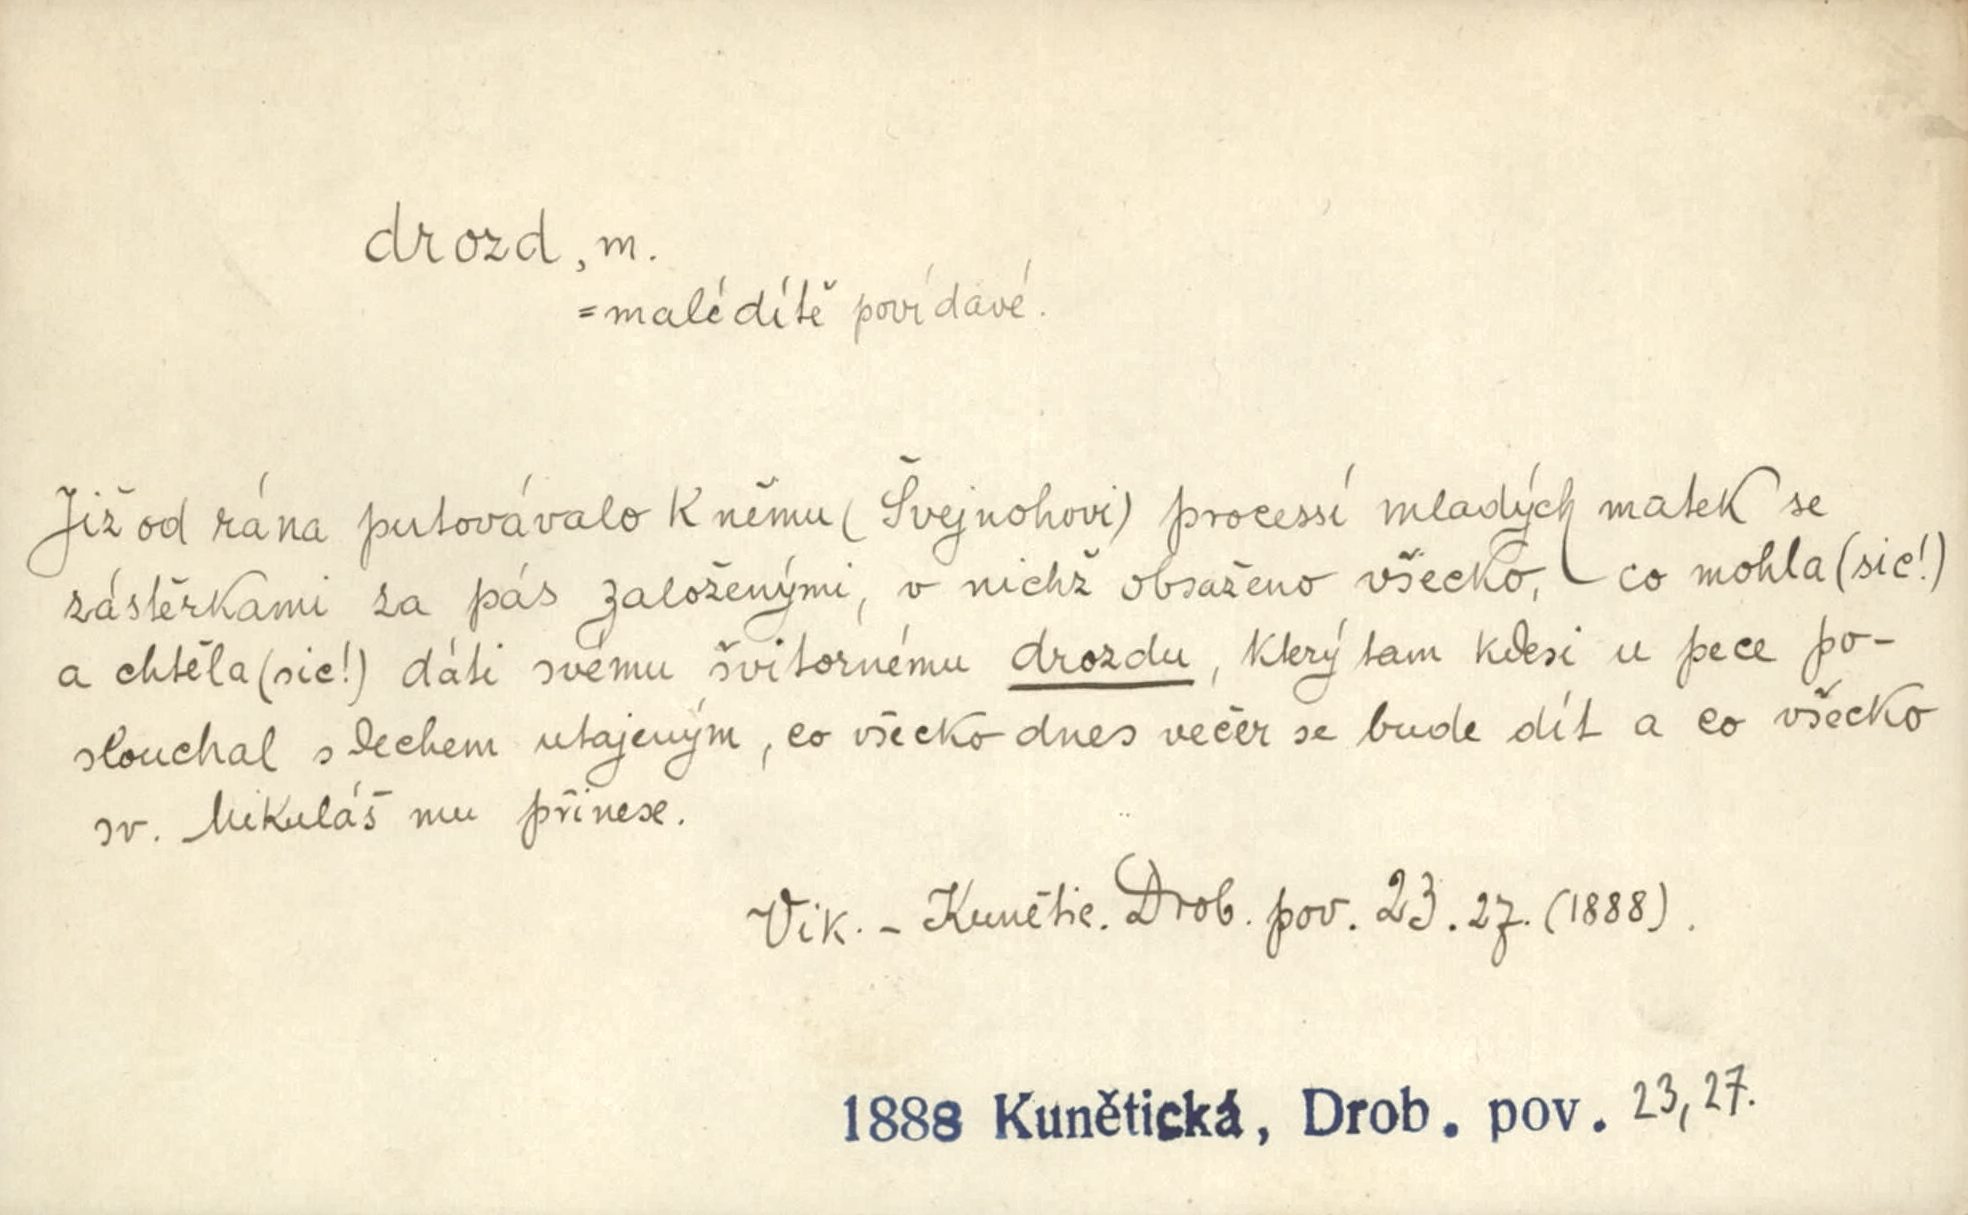 drozd, m.
= malé dítě povídavé.
Již od rána putovávalo k němu (Švejnohovi) processí mladých matek se
zástěrkami za pás založenými, v nichž obsaženo všecko, co mohla (sic!)
a chtěla (sic!) dáti svému švitornému drozdu, který tam kdesi u pece po-
slouchal s dechem utajeným, co všecko dnes večer se bude dít a co všecko
sv. Mikuláš mu přinese.
Vik. - Kunětic. Drob. pov. 23. 27. (1888).
1888 Kunětická, Drob. pov. 23, 27.